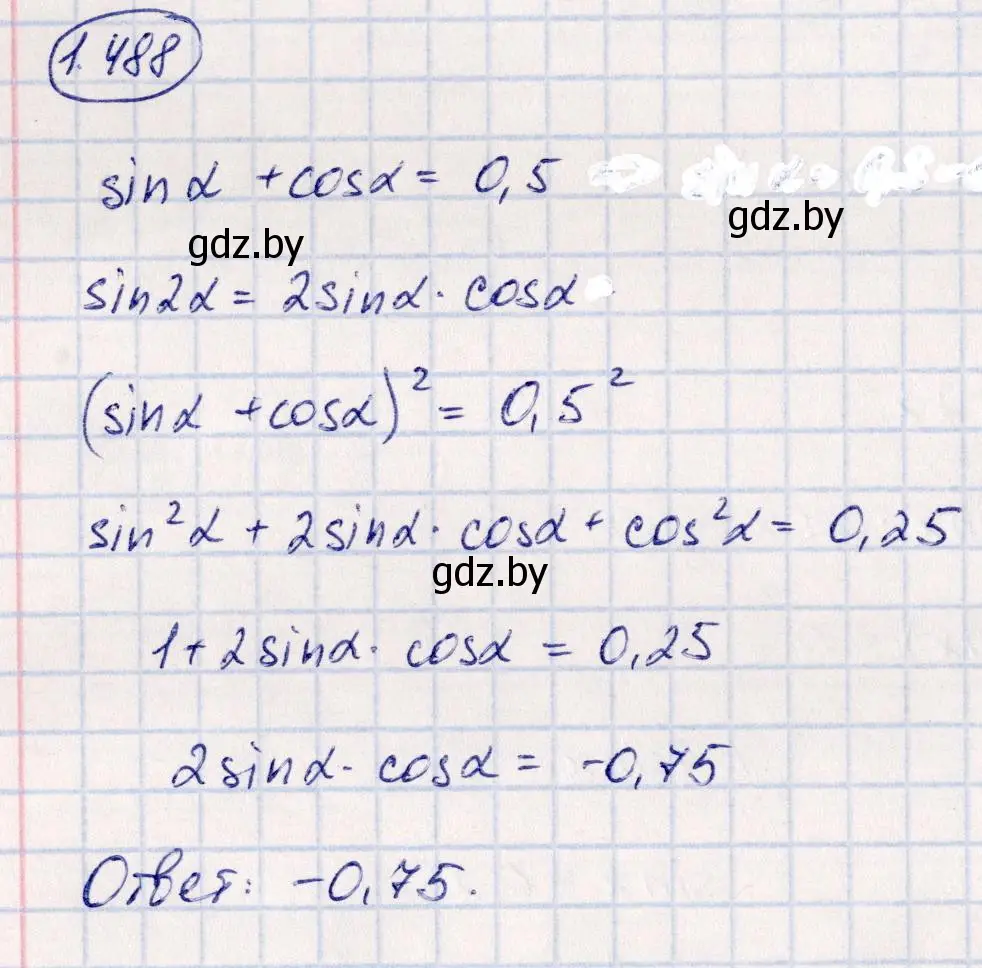 1.488
sinα + cosα = 0,5
gdz.by
gdz.by
sin2α = 2sinα · cosα
(sinα + cosα)² = 0,5²
sin²α + 2sinα · cosα + cos²α = 0,25
gdz.by
1 + 2sinα · cosα = 0,25
2sinα · cosα = -0,75
Ответ: -0,75.